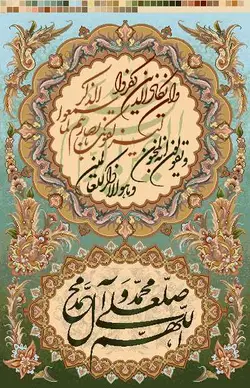 وان یکاد الذین کفروا
لیزلقونک بابصارهم لما سمعوا الذکر
ویقولون انه لمجنون
وما هو الا ذکر للعالمین
اللهم صل علی محمد و آل محمد